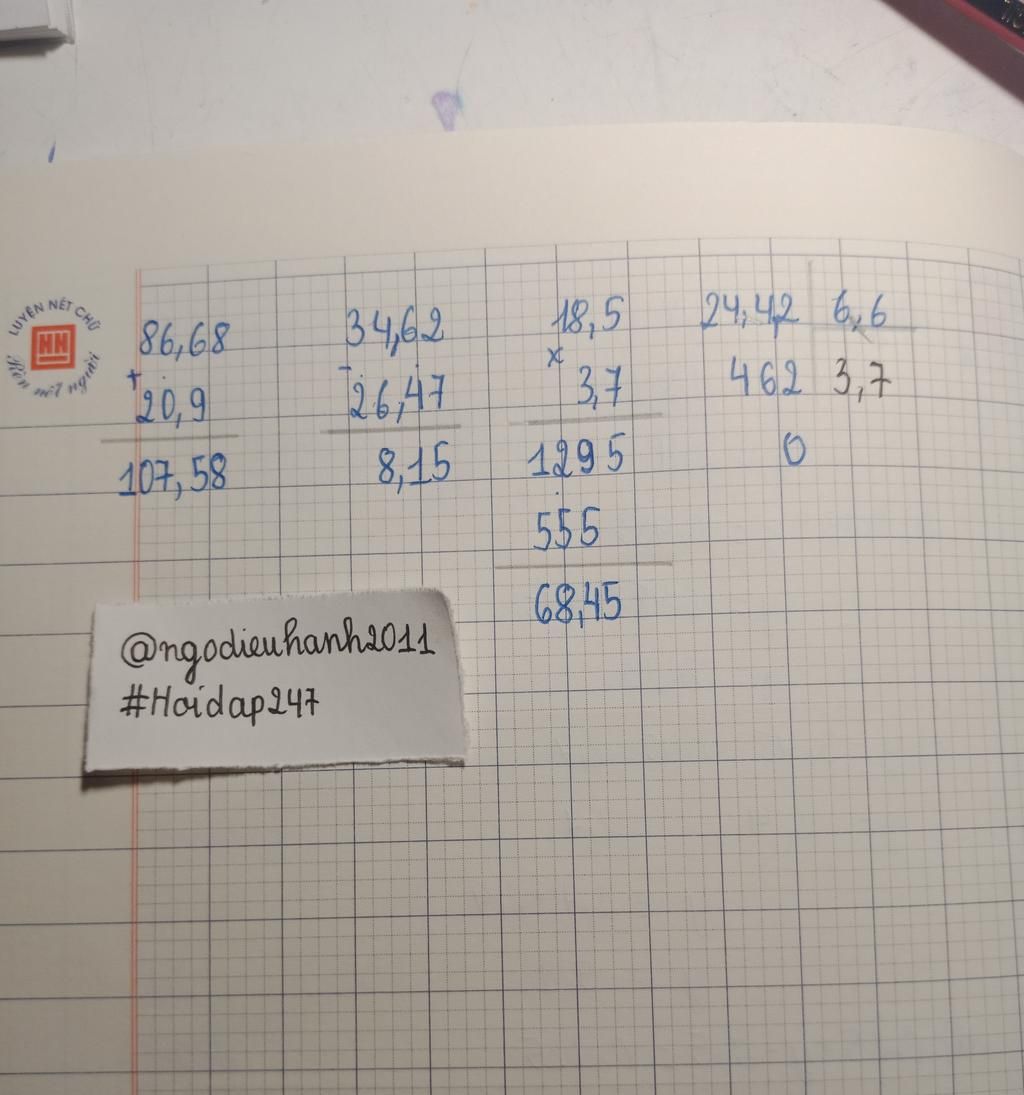 LUYỆN NÉT CHỮ
HH
Rèn nết người
86,68
+
20,9
107,58
34,62
-
26,47
8,15
18,5
x
3,7
1295
555
68,45
24,42 6,6
462 3,7
0
@ngodieuhanh2011
#Hoidap247